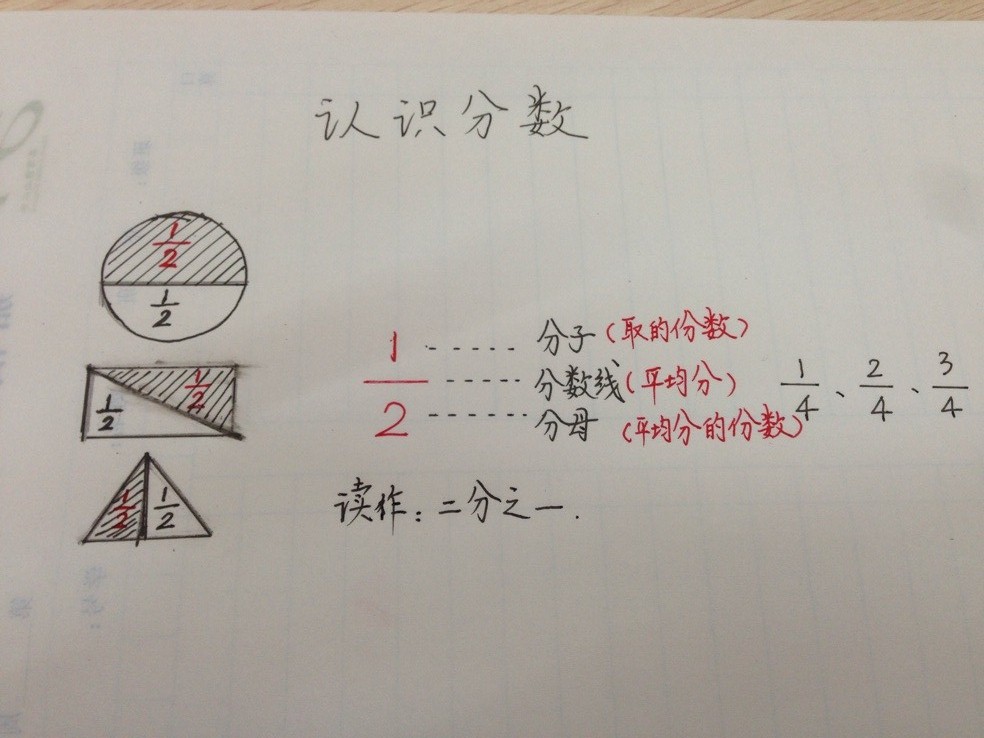 认识分数
1/2
1/2
1/2
1/2
1/2
1/2
1/2
分子(取的份数)
分数线(平均分)
分母(平均分的份数)
1/4、2/4、3/4
读作:二分之一.